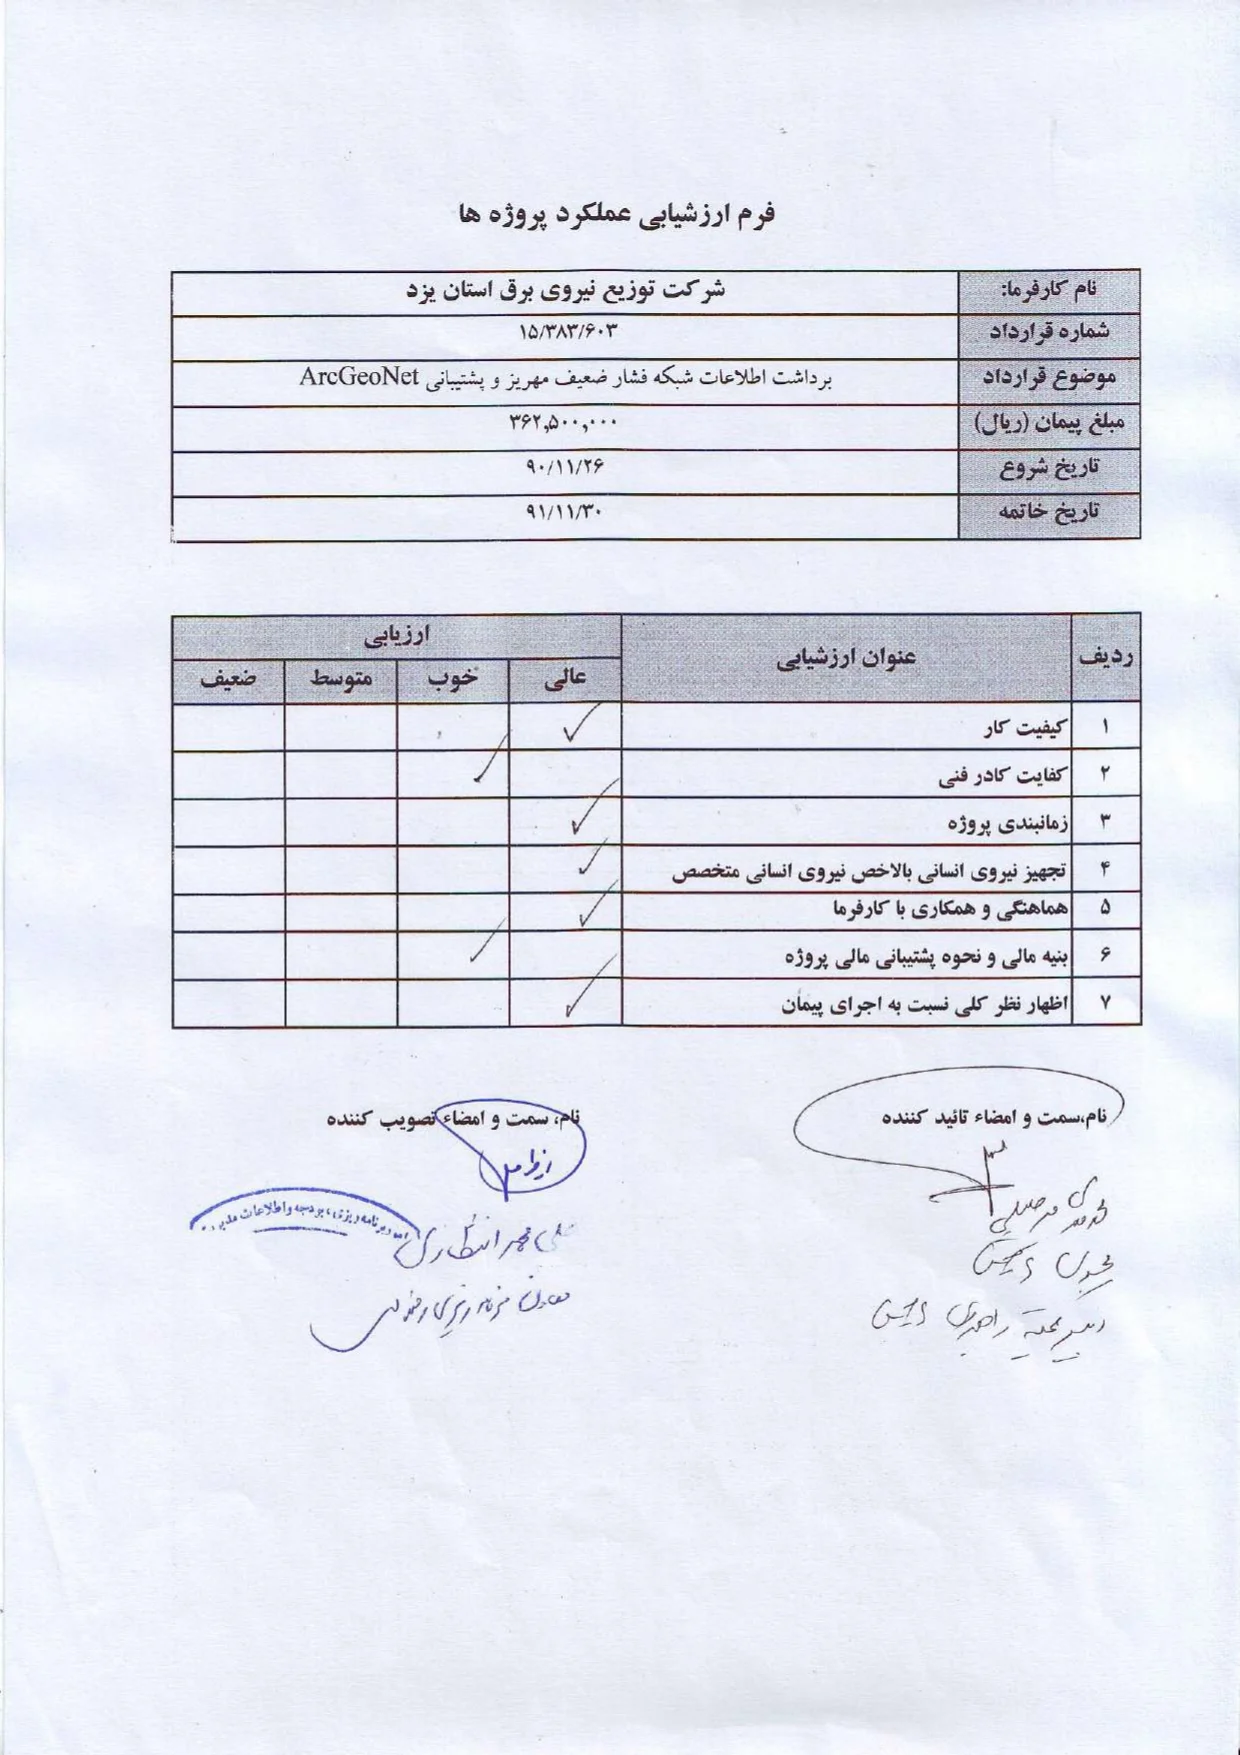 فرم ارزشیابی عملکرد پروژه ها
نام کارفرما: شرکت توزیع نیروی برق استان یزد
شماره قرارداد ۱۵/۳۸۳/۶۰۳
موضوع قرارداد برداشت اطلاعات شبکه فشار ضعیف مهریز و پشتیبانی ArcGeoNet
مبلغ پیمان (ریال) ۳۶۲,۵۰۰,۰۰۰
تاریخ شروع ۹۰/۱۱/۲۶
تاریخ خاتمه ۹۱/۱۱/۳۰
ردیف عنوان ارزشیابی ارزیابی
عالی خوب متوسط ضعیف
۱ کیفیت کار
۲ کفایت کادر فنی
۳ زمانبندی پروژه
۴ تجهیز نیروی انسانی بالاخص نیروی انسانی متخصص
۵ هماهنگی و همکاری با کارفرما
۶ بنیه مالی و نحوه پشتیبانی مالی پروژه
۷ اظهار نظر کلی نسبت به اجرای پیمان
نام،سمت و امضاء تائید کننده
نام، سمت و امضاء تصویب کننده
برنامه ریزی، بودجه و اطلاعات